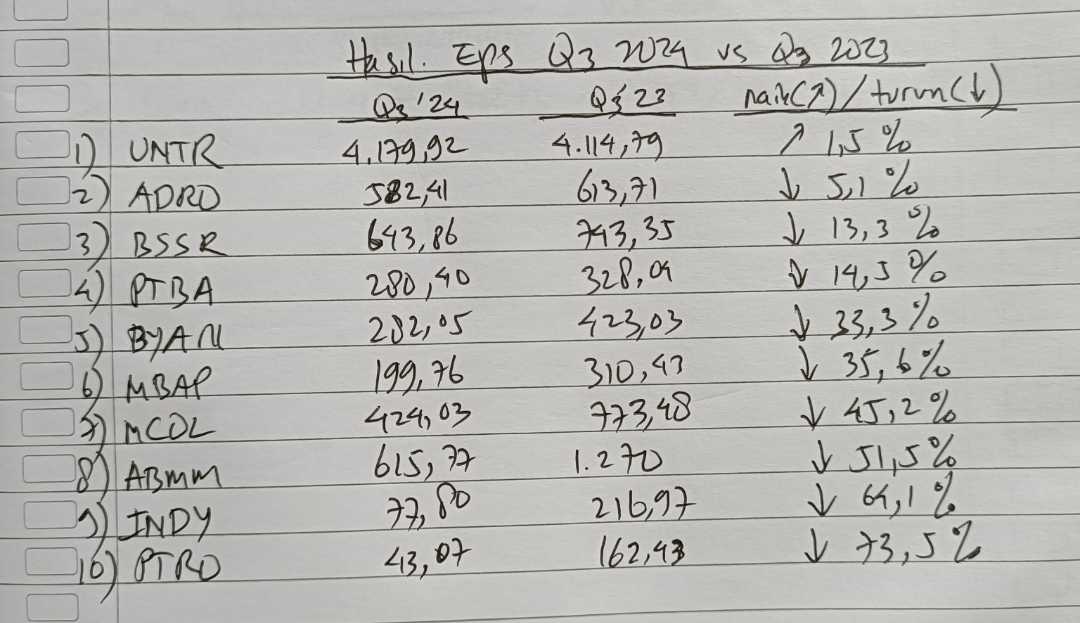 Hasil. Eps Q3 2024 vs Q3 2023
Q3 '24 Q3 '23 naik(↗)/turun(↓)
1) UNTR 4.179,92 4.114,79 ↗ 1,5 %
2) ADRO 582,41 613,71 ↓ 5,1 %
3) BSSR 643,86 743,35 ↓ 13,3 %
4) PTBA 280,40 328,09 ↓ 14,5 %
5) BYAN 282,05 423,03 ↓ 33,3 %
6) MBAP 199,76 310,43 ↓ 35,6 %
7) MCOL 424,03 773,48 ↓ 45,2 %
8) ABMM 615,77 1.270 ↓ 51,5 %
9) INDY 77,80 216,97 ↓ 64,1 %
10) PTRO 43,07 162,43 ↓ 73,5 %